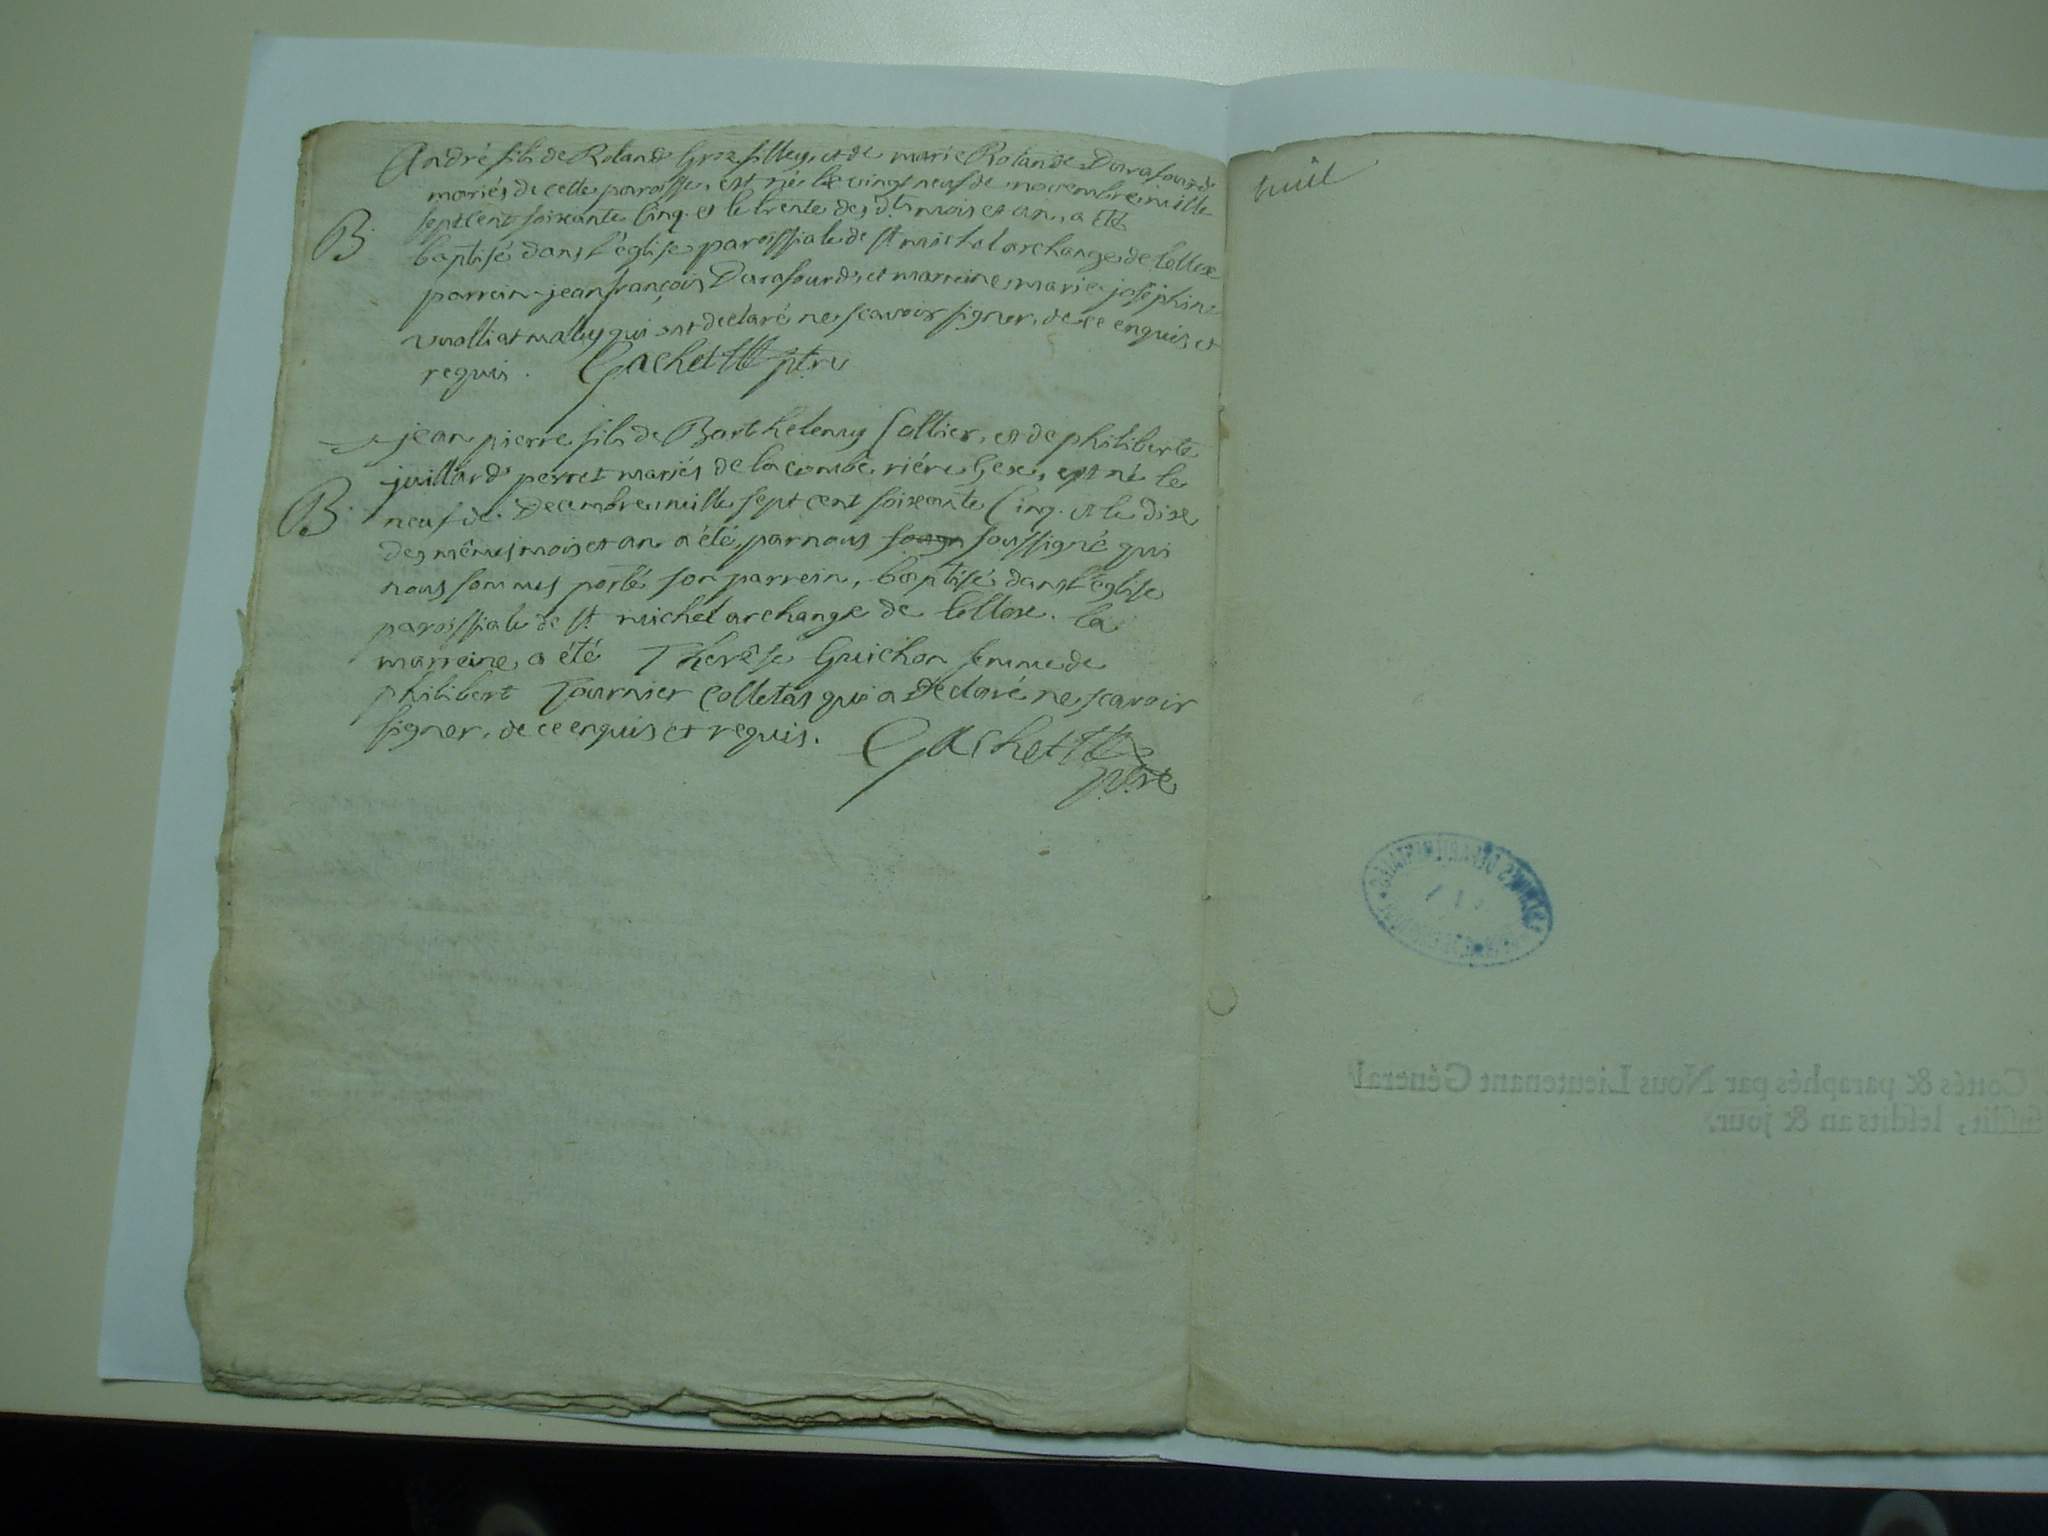 André fils de Roland Grosfilley, et de marie Rolande Darafourd
mariés de cette paroisse, est né le vingt neuf de novembre mille
sept cent soixante cinq. et le trente des dts mois et an, a été
B. baptisé dans l'église paroissiale de st michel archange de lellex
parrein jean françois Darafourd, et marreine marie josephine
qui ont declaré ne scavoir signer, de ce enquis et
requis. Gachet ptre
jean pierre fils de Barthelemy Sallier, et de philiberte
juillard perret mariés de la combe riére Gex, est né le
B. neuf de Decembre mille sept cent soixante Cinq. et le dixe
des mêmes mois et an a été, par nous soussigné qui
nous sommes porté son parrein, baptisé dans l'église
paroissiale de st. michel archange de lellex. la
marreine a été Therêse Guichon femme de
philibert Tournier Colletas qui a declaré ne scavoir
signer, de ce enquis et requis. Gachet
ptre
huit
Cottés & paraphés par Nous Lieutenant Général
susdit, lesdits an & jour.